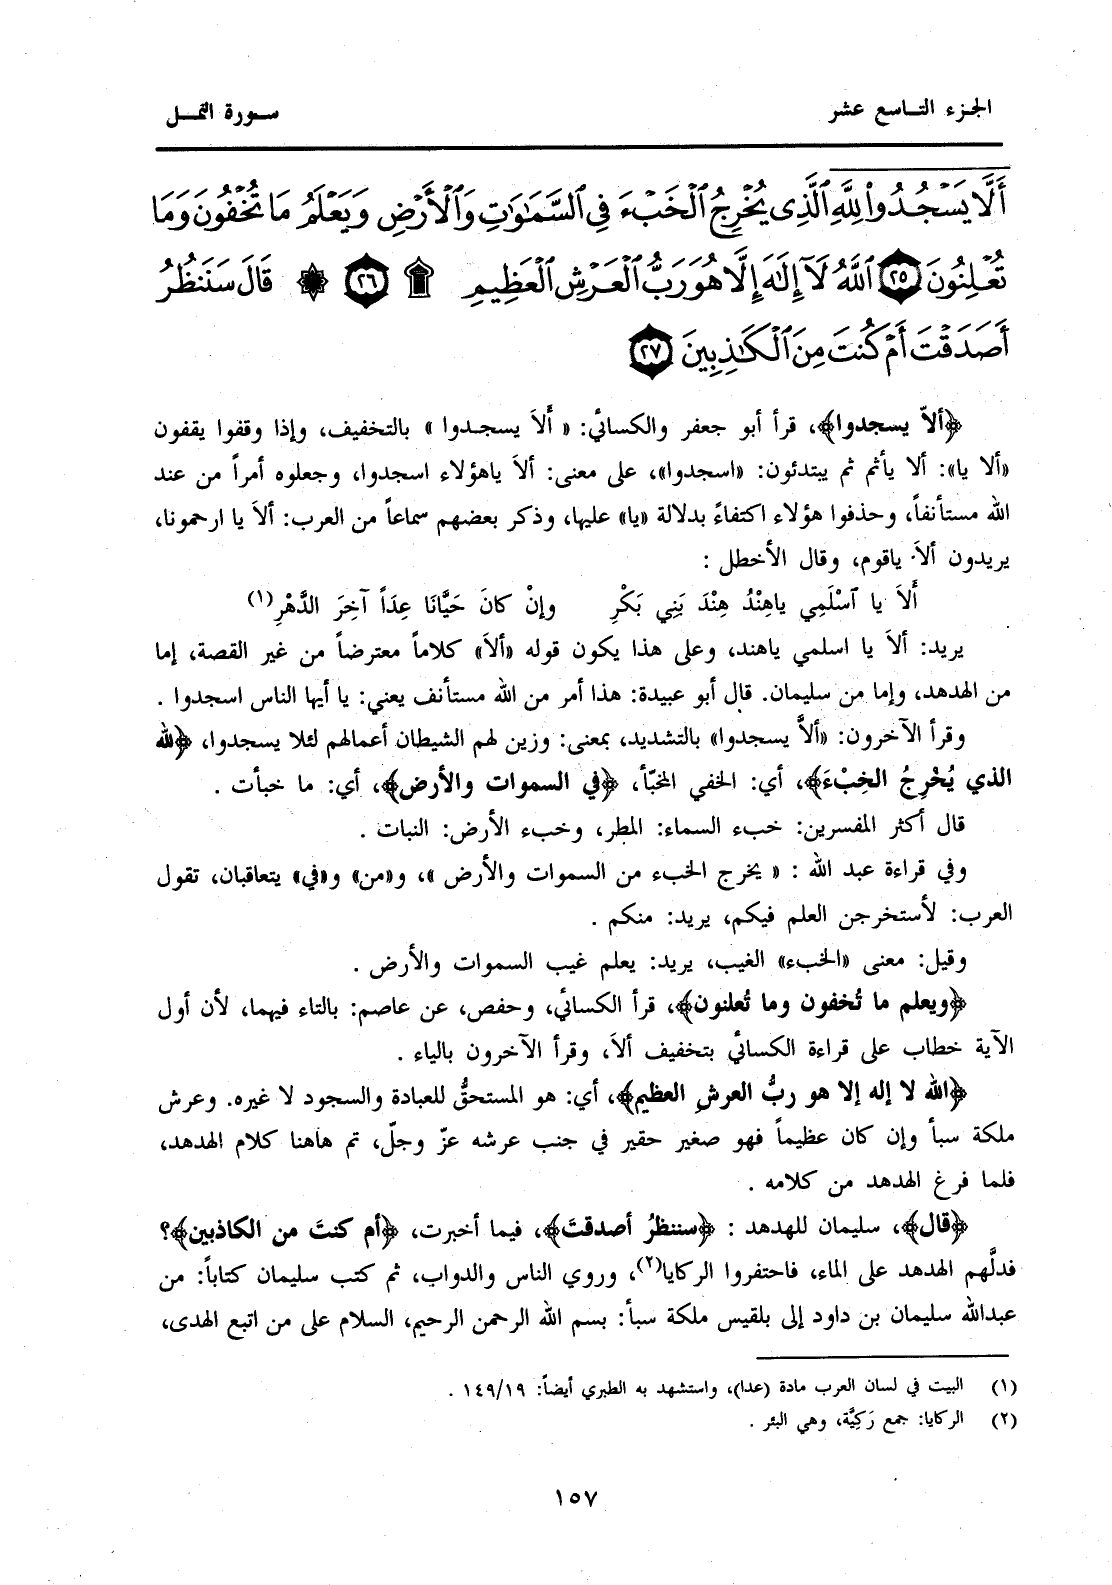 الجزء التاسع عشر
سورة النمل
أَلَّا يَسْجُدُوا۟ لِلَّهِ ٱلَّذِى يُخْرِجُ ٱلْخَبْءَ فِى ٱلسَّمَٰوَٰتِ وَٱلْأَرْضِ وَيَعْلَمُ مَا تُخْفُونَ وَمَا
تُعْلِنُونَ ٢٥ ٱللَّهُ لَآ إِلَٰهَ إِلَّا هُوَ رَبُّ ٱلْعَرْشِ ٱلْعَظِيمِ ۩ ٢٦ ۞ قَالَ سَنَنظُرُ
أَصَدَقْتَ أَمْ كُنتَ مِنَ ٱلْكَٰذِبِينَ ٢٧
﴿ألاّ يسجدوا﴾، قرأ أبو جعفر والكسائي: « أَلاَ يسجدوا » بالتخفيف، وإذا وقفوا يقفون
«ألا يا»: ألا يأثم ثم يبتدئون: «اسجدوا»، على معنى: ألاَ ياهؤلاء اسجدوا، وجعلوه أمراً من عند
الله مستأنفاً، وحذفوا هؤلاء اكتفاءً بدلالة «يا» عليها، وذكر بعضهم سماعاً من العرب: ألاَ يا ارحمونا،
يريدون ألاَ ياقوم، وقال الأخطل :
أَلاَ يا ٱسْلَمِي ياهِنْدُ هِنْدَ بَنِي بَكْرِ وإنْ كانَ حَيَّانَا عِدَاً آخِرَ الدَّهْرِ(١)
يريد: ألاَ يا اسلمي ياهند، وعلى هذا يكون قوله «ألاَ» كلاماً معترضاً من غير القصة، إما
من الهدهد، وإما من سليمان. قال أبو عبيدة: هذا أمر من الله مستأنف يعني: يا أيها الناس اسجدوا .
وقرأ الآخرون: «ألاَّ يسجدوا» بالتشديد، بمعنى: وزين لهم الشيطان أعمالهم لئلا يسجدوا، ﴿لله
الذي يُخْرِجُ الخِبْءَ﴾، أي: الخفي المخبّأ، ﴿في السموات والأرض﴾، أي: ما خبأت .
قال أكثر المفسرين: خبء السماء: المطر، وخبء الأرض: النبات .
وفي قراءة عبد الله : « يخرج الخبء من السموات والأرض »، و«من» و«في» يتعاقبان، تقول
العرب: لأستخرجن العلم فيكم، يريد: منكم .
وقيل: معنى «الخبء» الغيب، يريد: يعلم غيب السموات والأرض .
﴿ويعلم ما تُخفون وما تُعلنون﴾، قرأ الكسائي، وحفص، عن عاصم: بالتاء فيهما، لأن أول
الآية خطاب على قراءة الكسائي بتخفيف ألاَ، وقرأ الآخرون بالياء .
﴿الله لا إله إلا هو ربُّ العرشِ العظيم﴾، أي: هو المستحقُّ للعبادة والسجود لا غيره. وعرش
ملكة سبأ وإن كان عظيماً فهو صغير حقير في جنب عرشه عزّ وجلّ، تم هاهنا كلام الهدهد،
فلما فرغ الهدهد من كلامه .
﴿قال﴾، سليمان للهدهد : ﴿سننظرُ أصدقتَ﴾، فيما أخبرت، ﴿أم كنتَ من الكاذبين﴾؟
فدلَّهم الهدهد على الماء، فاحتفروا الركايا(٢)، وروي الناس والدواب، ثم كتب سليمان كتاباً: من
عبدالله سليمان بن داود إلى بلقيس ملكة سبأ: بسم الله الرحمن الرحيم، السلام على من اتبع الهدى،
(١) البيت في لسان العرب مادة (عدا)، واستشهد به الطبري أيضاً: ١٤٩/١٩ .
(٢) الركايا: جمع رَكِيَّة، وهي البئر .
١٥٧